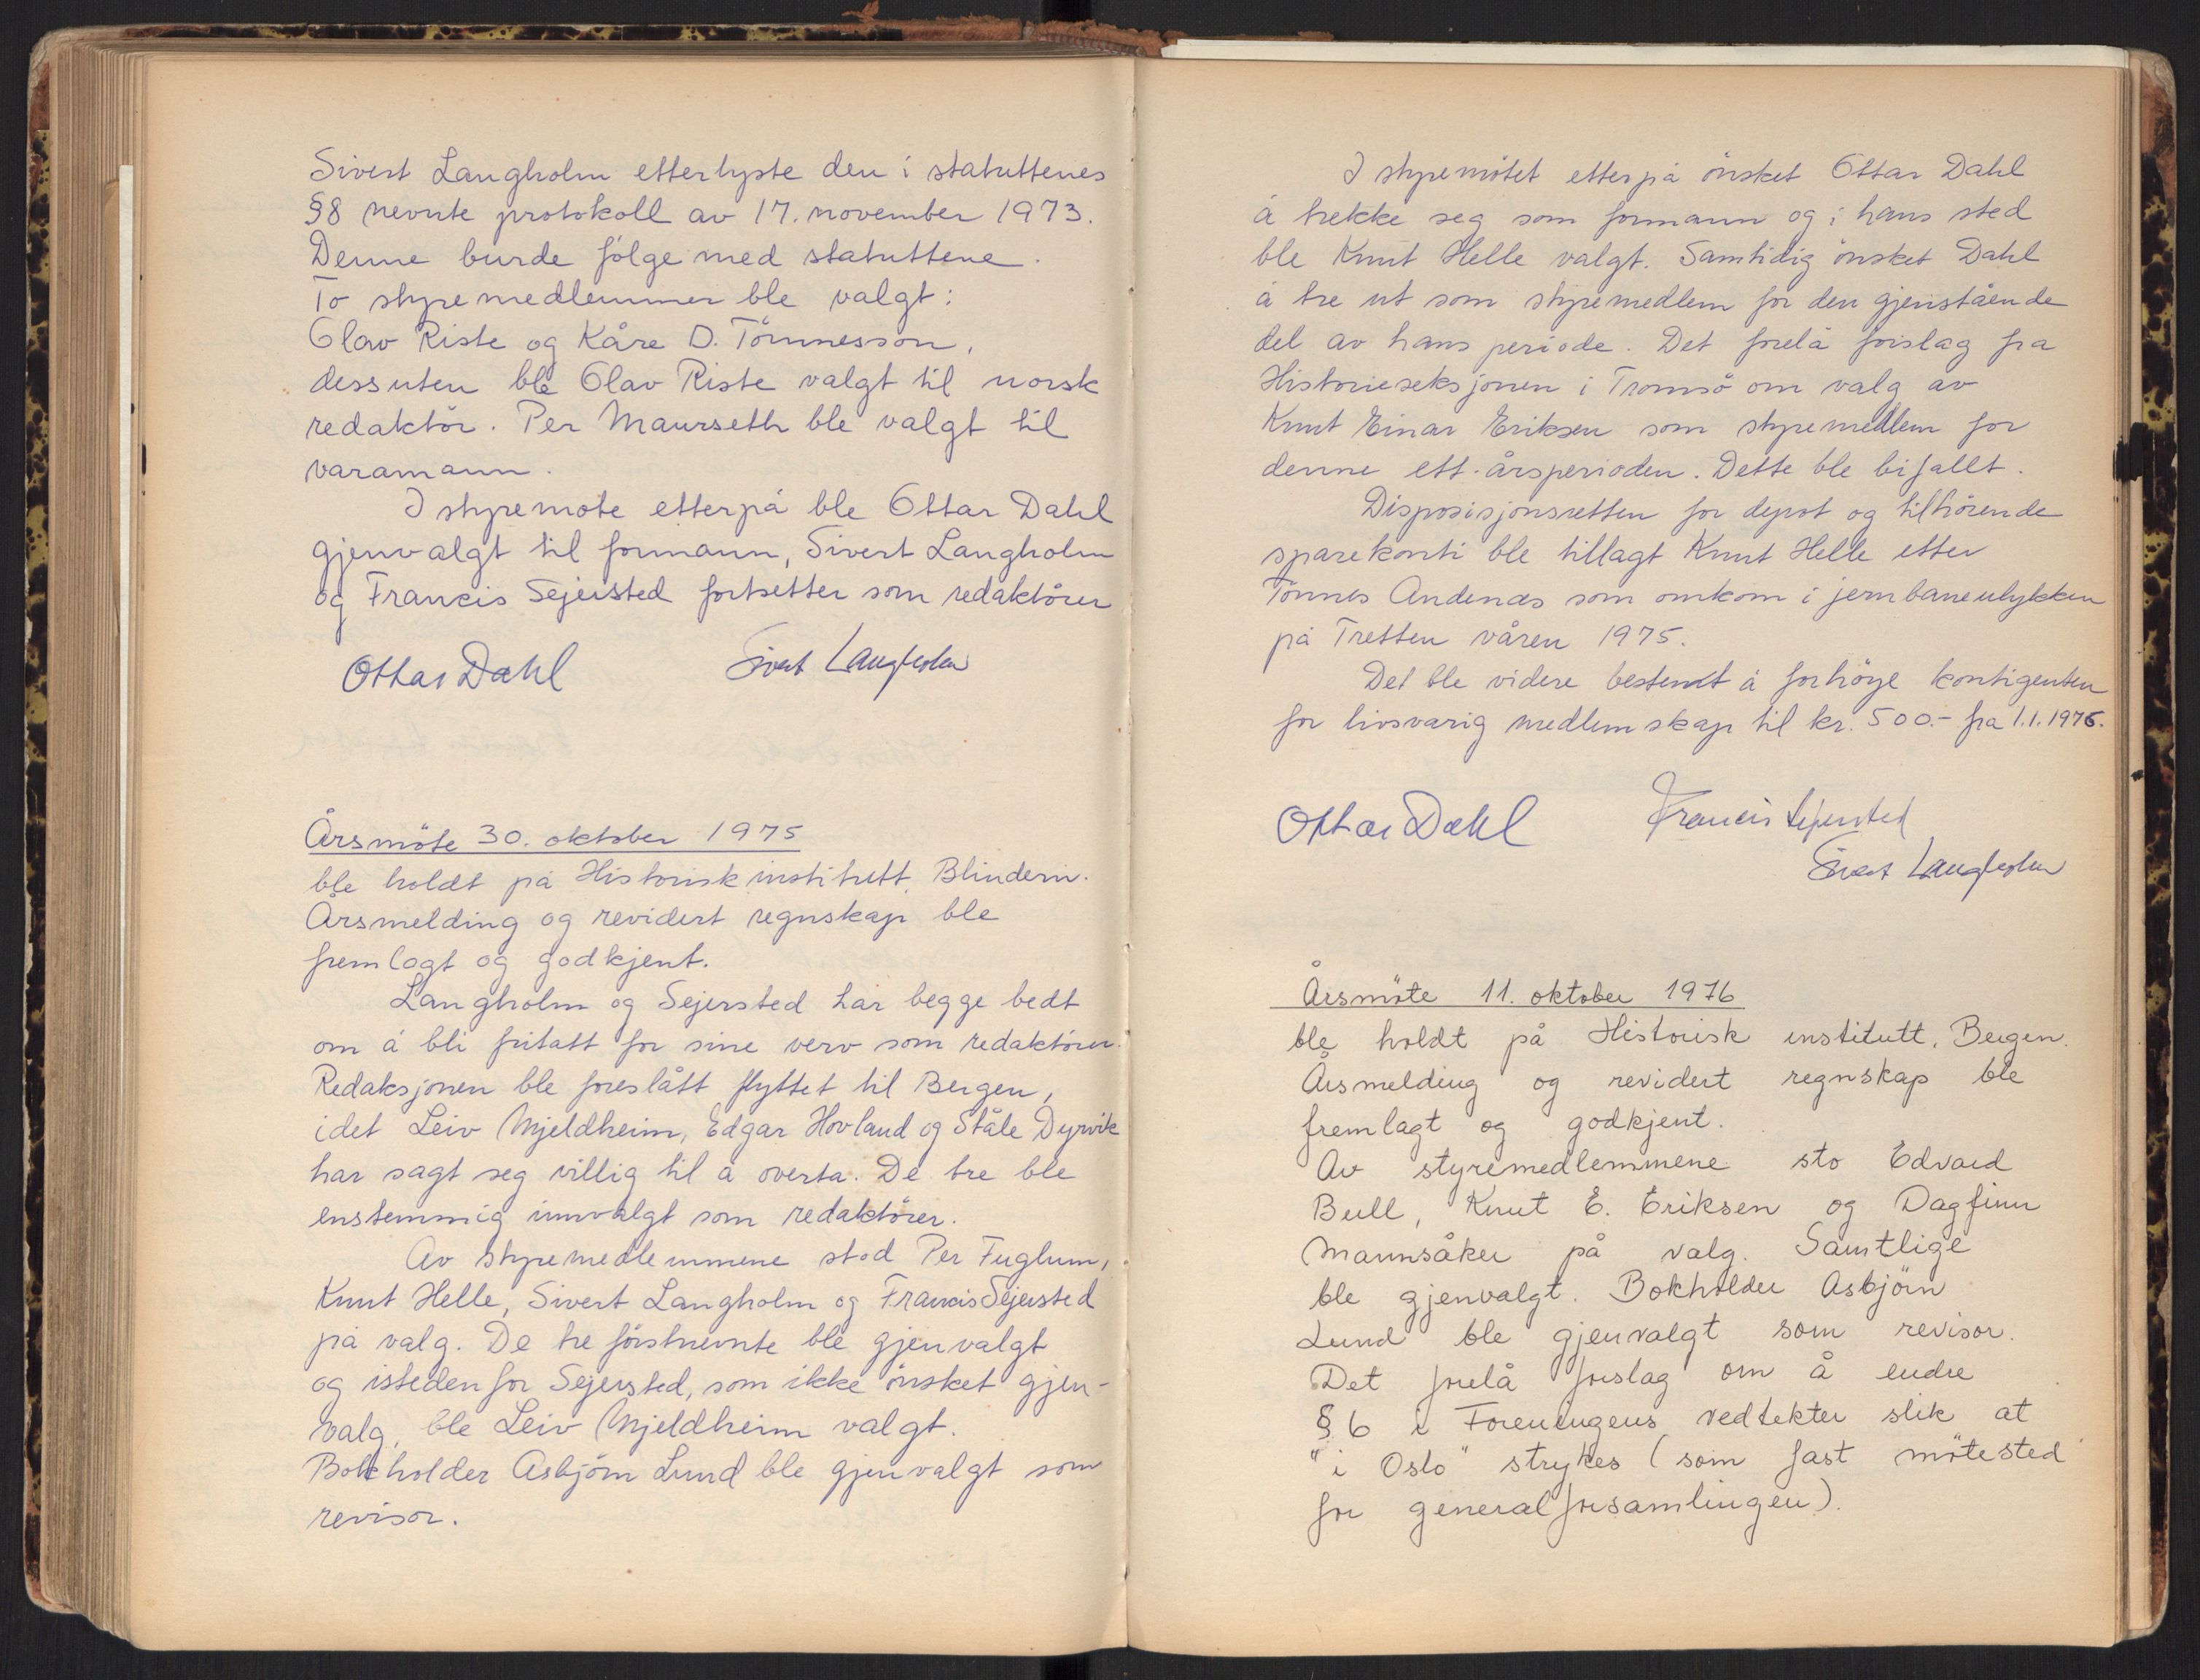 Sivert Langholm etterlyste den i statuttenes
§8 nevnte protokoll av 17. november 1973.
Denne burde fölge med statuttene.
To styremedlemmer ble valgt:
Olav Riste og Kåre D. Tönnesson,
dessuten ble Olav Riste valgt til norsk
redaktör. Per Maurseth ble valgt til
varamann.
I styremöte etterpå ble Ottar Dahl
gjenvalgt til formann, Sivert Langholm
og Francis Sejersted fortsetter som redaktörer
Ottar Dahl Sivert Langholm
Årsmöte 30. oktober 1975
ble holdt på Historisk institutt, Blindern.
Årsmelding og revidert regnskap ble
fremlagt og godkjent.
Langholm og Sejersted har begge bedt
om å bli fritatt for sine verv som redaktörer.
Redaksjonen ble foreslått flyttet til Bergen,
idet Leiv Mjeldheim, Edgar Hovland og Ståle Dyrvik
har sagt seg villig til å overta. De tre ble
enstemmig innvalgt som redaktörer.
Av styremedlemmene stod Per Fuglum,
Knut Helle, Sivert Langholm og Francis Sejersted
på valg. De tre förstnevnte ble gjenvalgt
og istedenfor Sejersted, som ikke önsket gjen-
valg, ble Leiv Mjeldheim valgt.
Bokholder Asbjörn Lund ble gjenvalgt som
revisor.
I styremötet etterpå önsket Ottar Dahl
å trekke seg som formann og i hans sted
ble Knut Helle valgt. Samtidig önsket Dahl
å tre ut som styremedlem for den gjenstående
del av hans periode. Det forelå forslag fra
Historieseksjonen i Tromsö om valg av
Knut Einar Eriksen som styremedlem for
denne ett-årsperioden. Dette ble bifallt.
Disposisjonsretten for depot og tilhörende
sparekonti ble tillagt Knut Helle etter
Tönnes Andenæs som omkom i jernbaneulykken
på Tretten våren 1975.
Det ble videre bestemt å forhöye kontigenten
for livsvarig medlemskap til kr. 500.- fra 1.1.1976.
Ottar Dahl Francis Sejersted
Sivert Langholm
Årsmöte 11. oktober 1976
ble holdt på Historisk institutt, Bergen.
Årsmelding og revidert regnskap ble
fremlagt og godkjent.
Av styremedlemmene sto Edvard
Bull, Knut E. Eriksen og Dagfinn
Mannsåker på valg. Samtlige
ble gjenvalgt. Bokholder Asbjörn
Lund ble gjenvalgt som revisor.
Det forelå forslag om å endre
§ 6 i Foreningens vedtekter slik at
"i Oslo" strykes (som fast mötested
for generalforsamlingen).